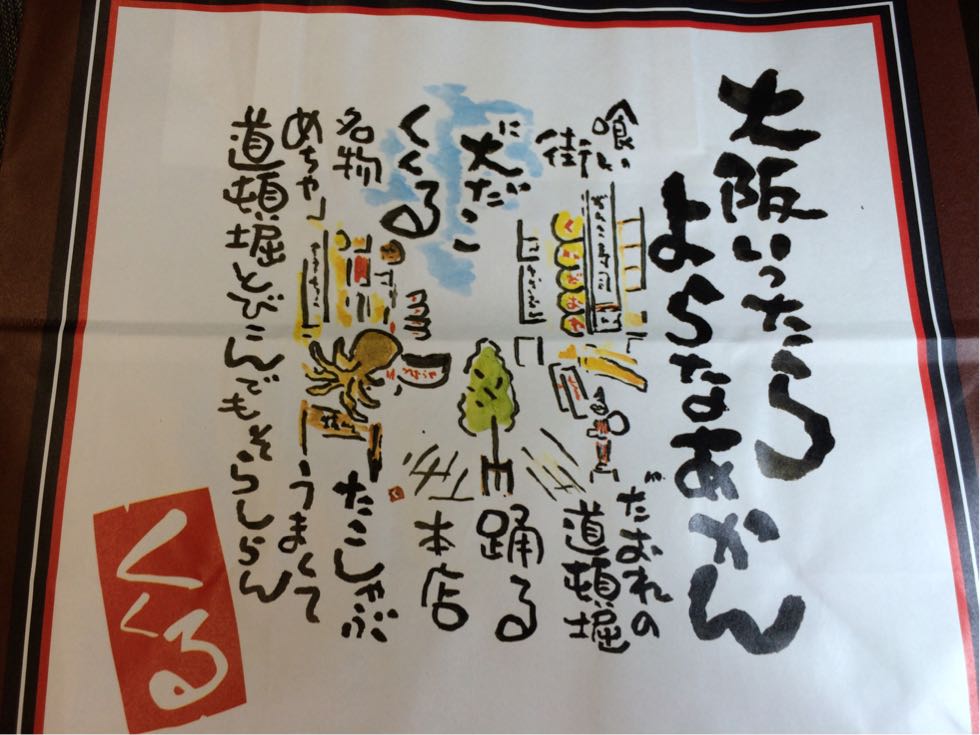 大阪いったら
よらなあかん
喰いだおれの
街 道頓堀
に大だこ 踊る
くくる 本店
名物 たこしゃぶ
めちゃ うまくて
道頓堀とびこんでもそらしらん
くいだおれ
くくる